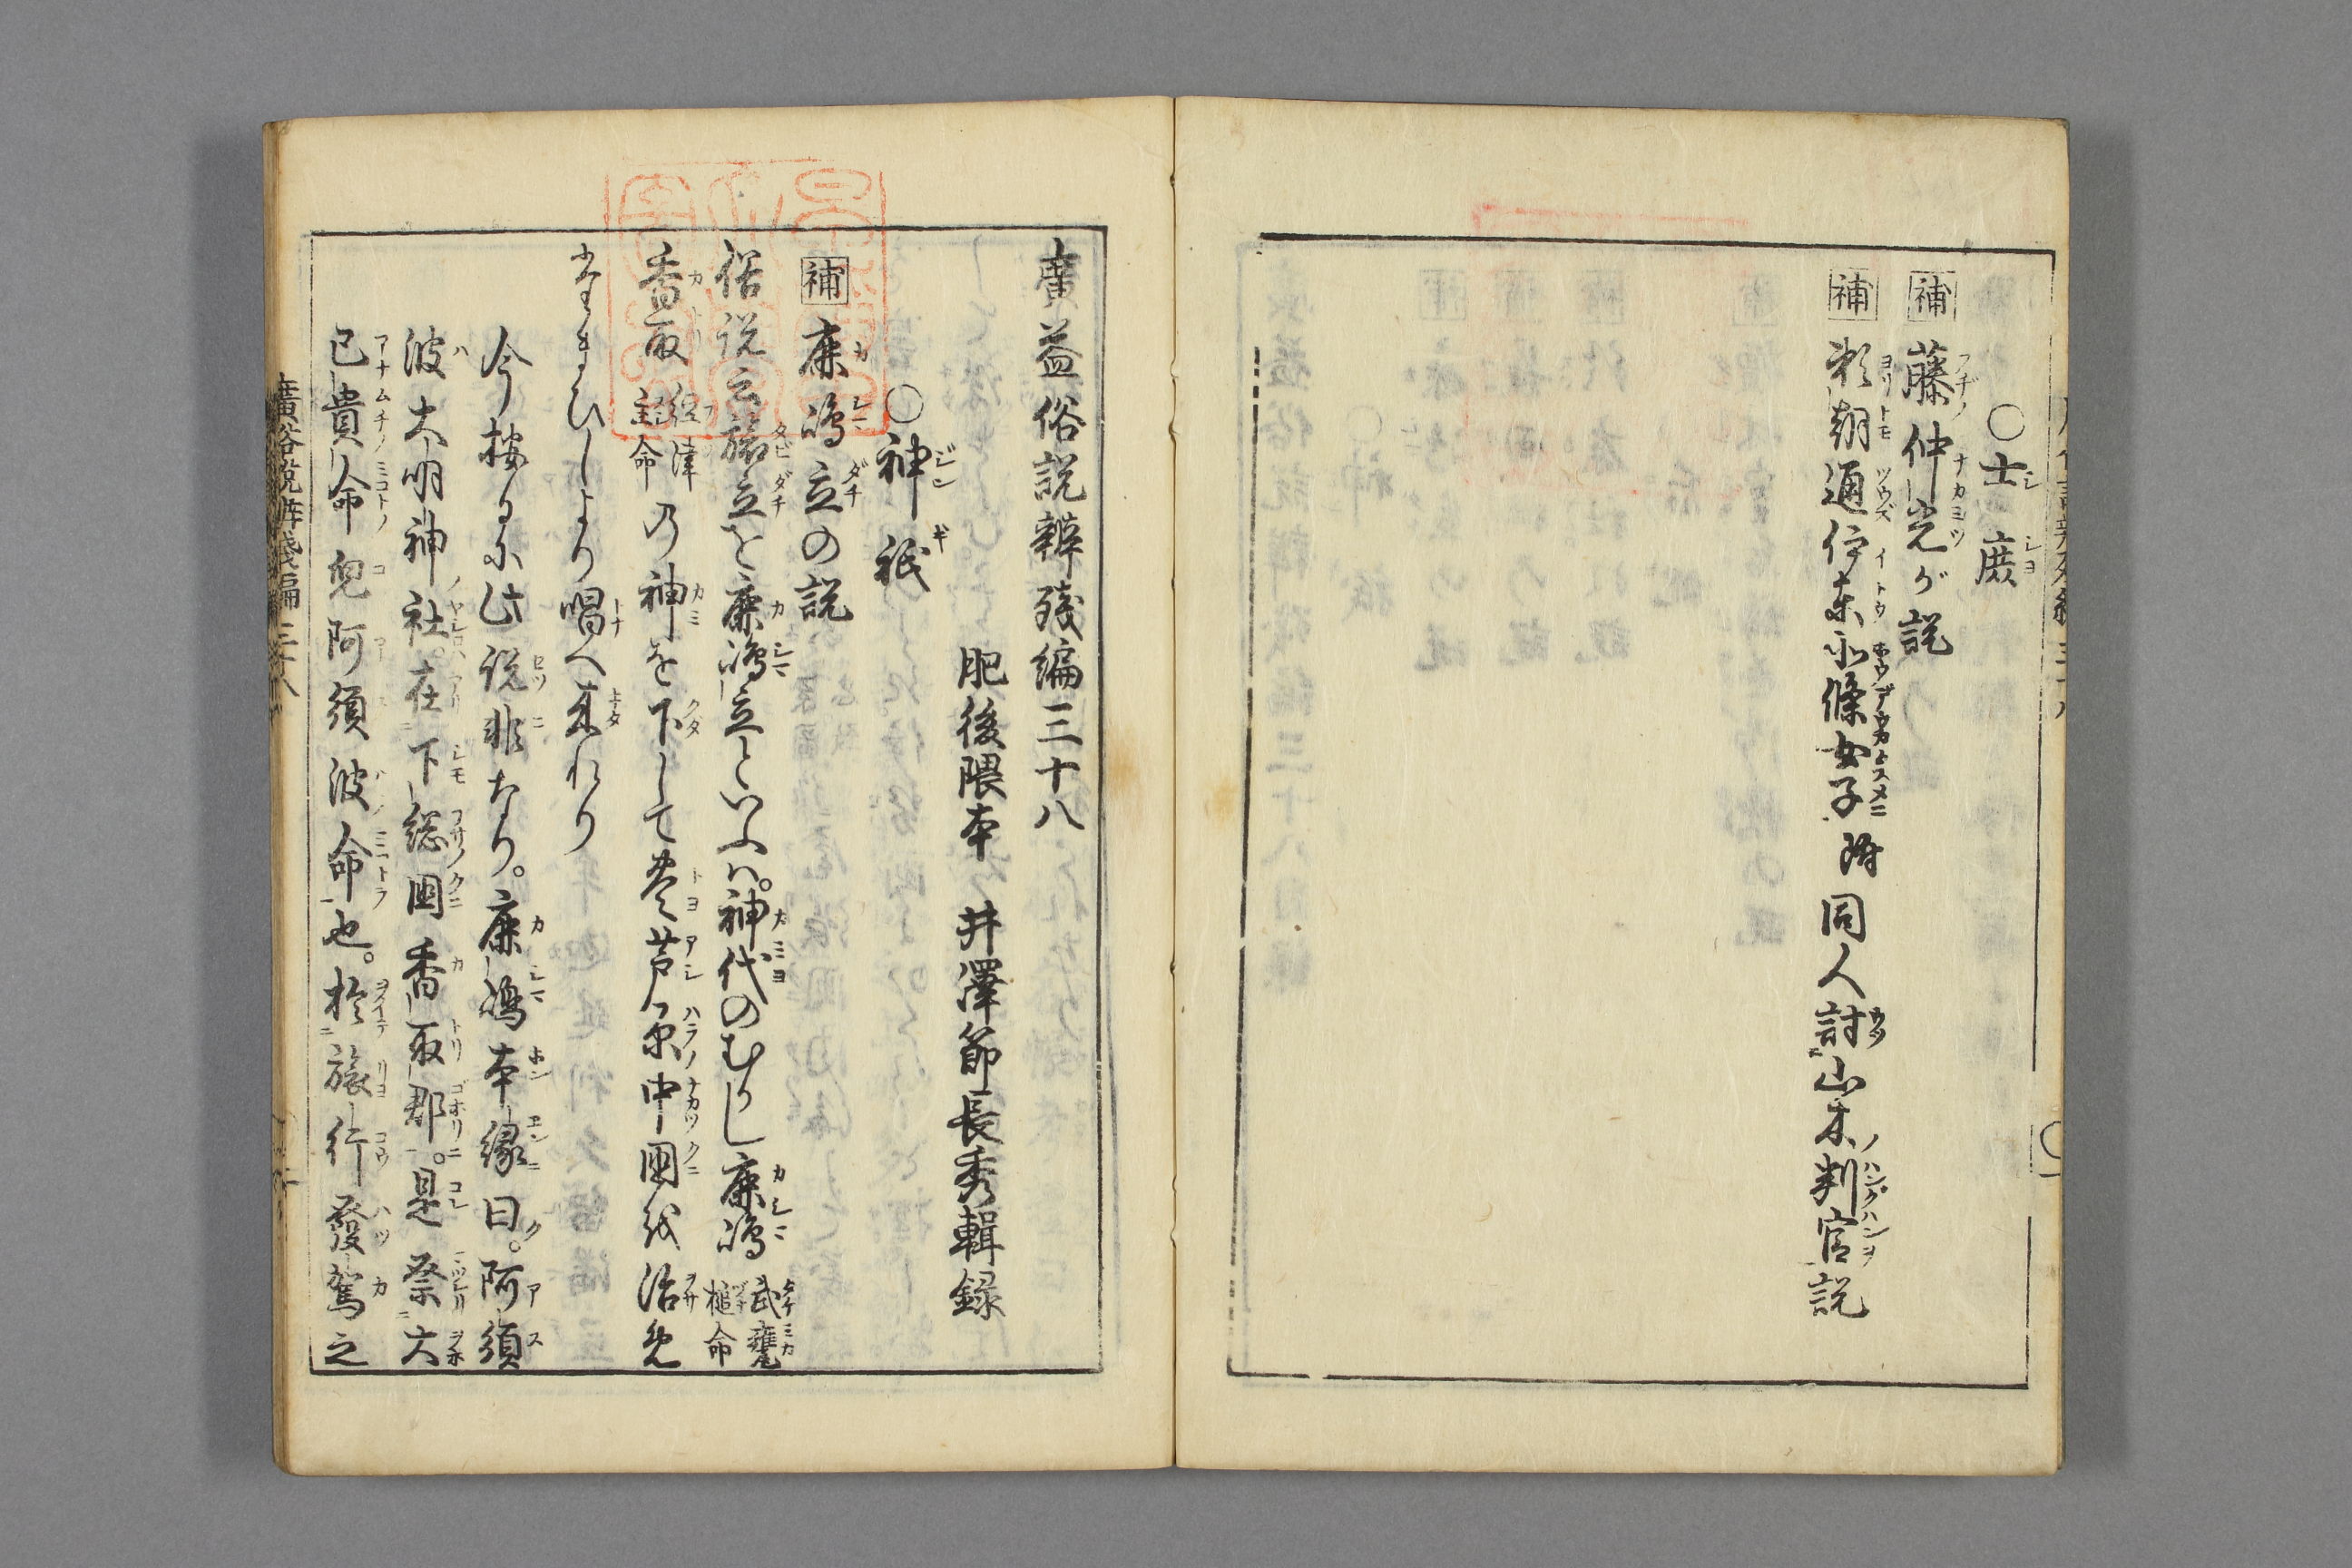 ○士庶
補 藤仲光が説
補 頼朝通伊東北條女子 附 同人討山木判官説
廣益俗説辨殘編三十八
肥後隈本 井澤節長秀輯録
○神祇
補 鹿嶋立の説
俗説云旅立を鹿嶋立といふハ。神代のむかし鹿嶋 武甕槌命
香取 經津主命 の神を下して豊芦原中國を治め
たまひしより唱へ来れり
今按るに此説非なり。鹿嶋本縁曰。阿須
波大明神社。在下総國香取郡。是祭大
已貴命兒阿須波命也。於旅行發駕之
廣俗説辨殘編 三十八